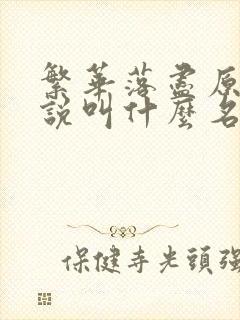 繁華落盡原
說叫什麼名
保健寺光頭強